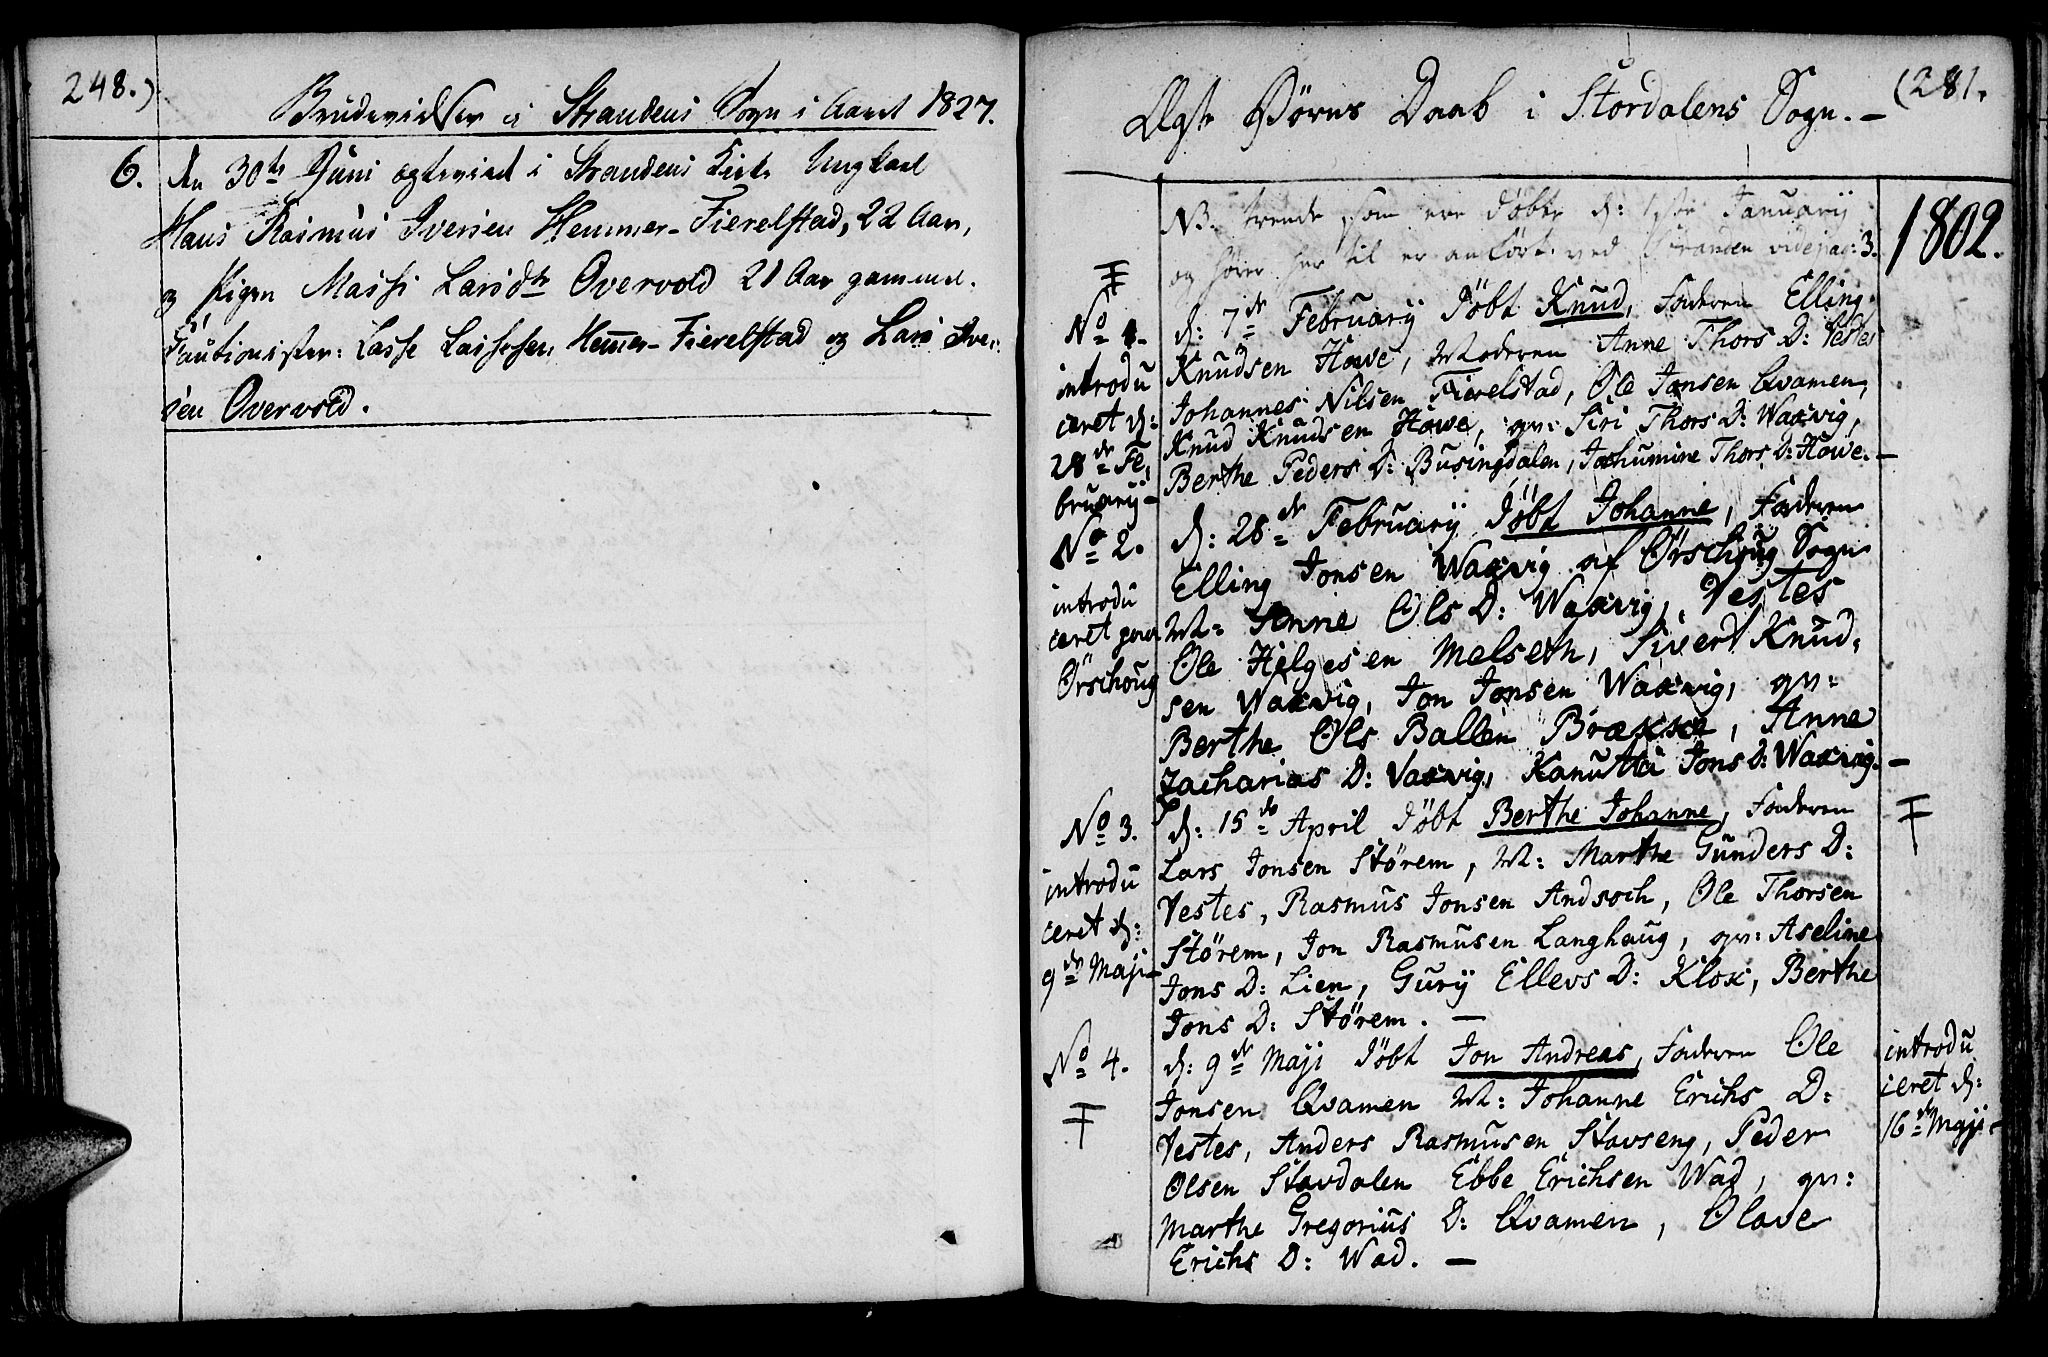 248.)
Brudevielser i Strandens Sogn i Aaret 1827.
6. den 30te Juni egteviet i Strandens Kirke Ungkarl
Hans Rasmus Iversen Hemmer-Fierelstad, 22 Aar,
og Pigen Massi Larsdtr Overvold 21 Aar gammel.
Cautionister: Lasse Lassesen Hemmer-Fierelstad og Lars Iver-
sen Overvold.
(281.
Ægte Børns Daab i Stordalens Sogn. —
1802.
NB. trende, som ere døbte d: 1ste Januarij
og hører her til er anført ved Stranden vide pag: 3.
No 1.
introdu
ceret d:
28de Fe,
bruarij —
d: 7de Februarij døbt Knud, Faderen Elling
Knudsen Howe, Moderen Anne Thors D: Testes
Johannes Nilsen Fierelstad, Ole Jonsen Qvamen,
Knud Knudsen Howe, qv: Siri Thors D: Waxvig,
Berthe Peders D: Busingdalen, Jochumine Thors D: Howe. —
No 2.
introdu
ceret paa
Ørschoug
d: 28de Februarij døbt Johanne, Faderen
Elling Jonsen Waxvig af Ørschoug Sogn
M: Anne Ols D: Waxvig, Testes
Ole Helgesen Melseth, Sivert Knud,
sen Waxvig, Jon Jonsen Waxvig, qv:
Berthe Ols Ballen Brække, Anne
Zacharias D: Vaxvig, Kanutta Jons D: Waxvig. —
No 3.
introdu
ceret d:
9de Maji —
d: 15de April døbt Berthe Johanne, Faderen
Lars Jonsen Størem, M: Marthe Gunders D:
Testes, Rasmus Jonsen Andsoch, Ole Thorsen
Størem, Jon Rasmusen Langhaug, qv: Aseline
Jons D: Lien, Gury Ellevs D: Klox, Berthe
Jons D: Størem. —
No 4.
d: 9de Maji døbt Jon Andreas, Faderen Ole
Jonsen Qvamen M: Johanne Erichs D:
Testes, Anders Rasmusen Stavseng, Peder
Olsen Stavdalen Ebbe Erichsen Wad, qv:
Marthe Gregorius D: Qvamen, Olave
Erichs D: Wad. —
introdu
ceret d:
16de Maji —